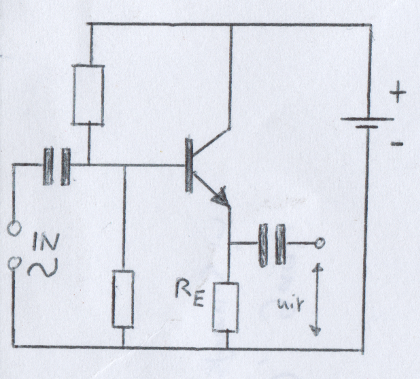 +
-
IN
~
RE
uit